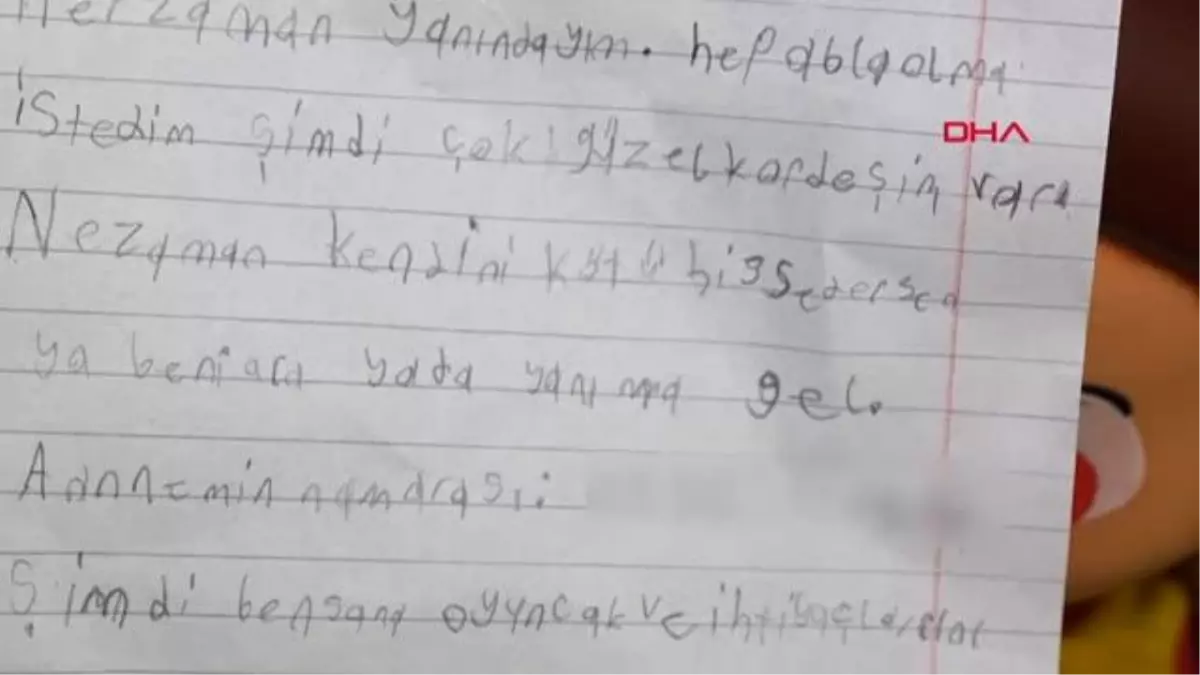 Herzaman yanındayım. hep abla olma
istedim şimdi çok güzel kardeşim var.
DHA
Nezaman kendini kötü hissedersen
ya beni ara yada yanıma gel.
Anannemin numarası:
Şimdi ben sana oyuncak ve ihtiyaçlardan